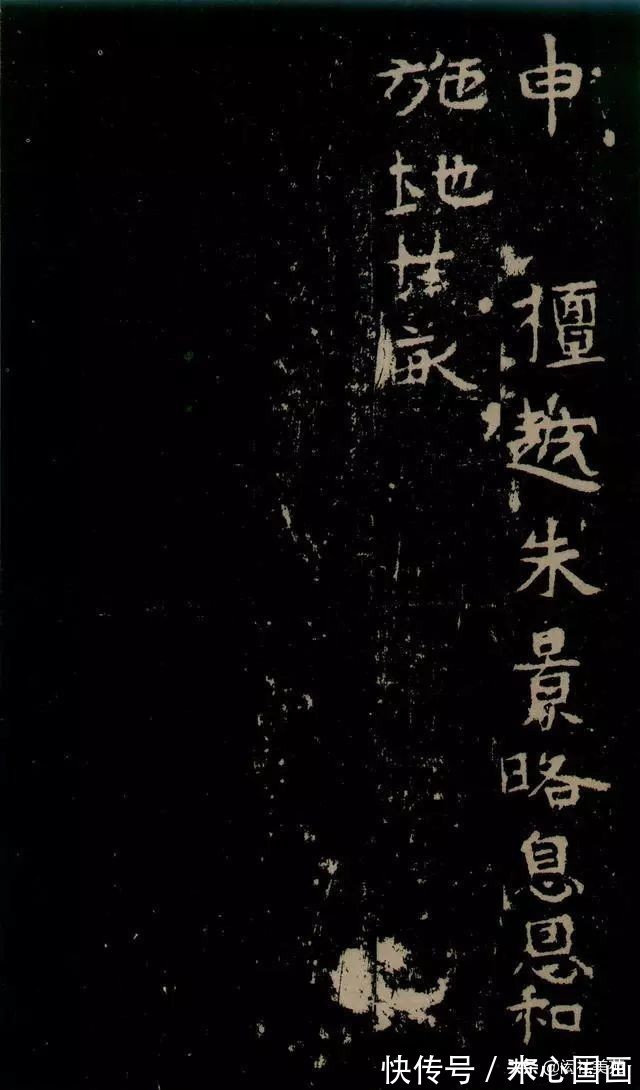 申 檀越朱景略息恩和
施地
快传号
心国画